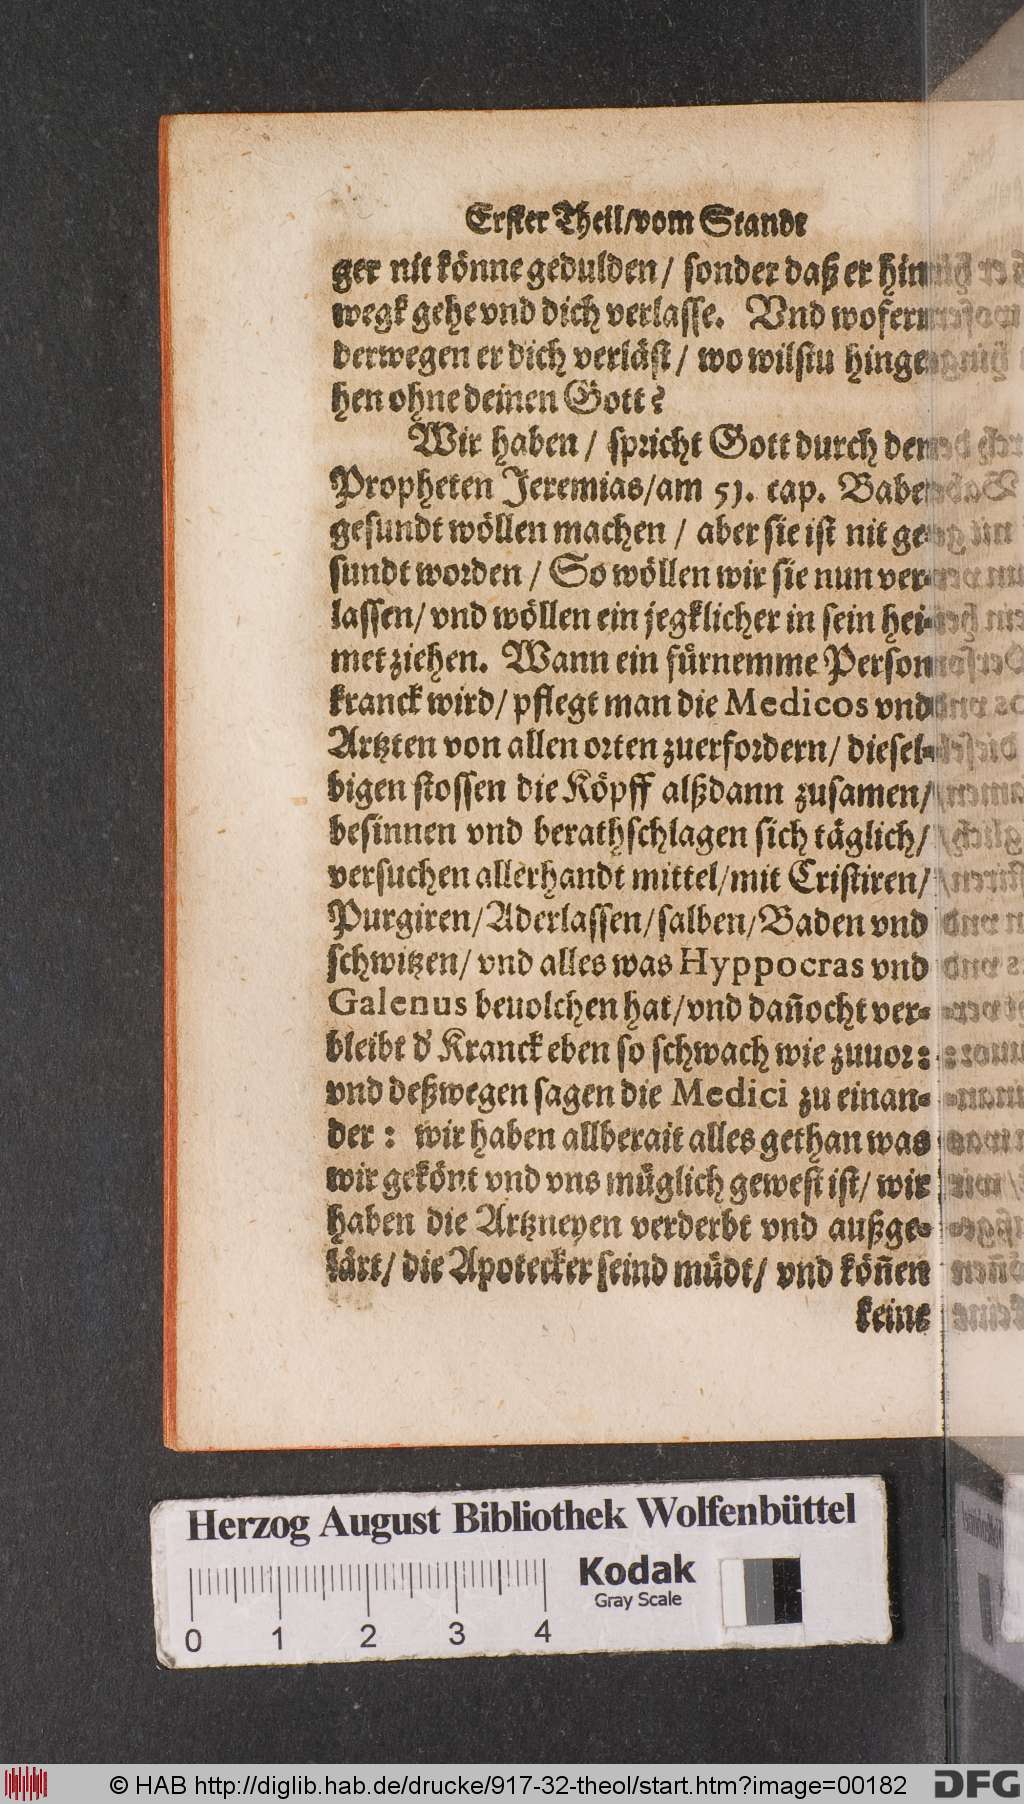 Erster Theil/vom Stande
ger nit könne gedulden/ sonder daß er hin
wegk gehe vnd dich verlasse. Vnd wofern
derwegen er dich verläst/ wo wilstu hinge
hen ohne deinen Gott?
Wir haben/ spricht Gott durch den
Propheten Jeremias/am 51. cap. Babel
gesundt wöllen machen/ aber sie ist nit ge-
sundt worden/ So wöllen wir sie nun ver-
lassen/ vnd wöllen ein jegklicher in sein hei-
met ziehen. Wann ein fürnemme Person
kranck wird/ pflegt man die Medicos vnd
Artzten von allen orten zuerfordern/ diesel-
bigen stossen die Köpff alßdann zusamen/
besinnen vnd berathschlagen sich täglich/
versuchen allerhandt mittel/mit Cristiren/
Purgiren/Aderlassen/salben/Baden vnd
schwitzen/ vnd alles was Hyppocras vnd
Galenus beuolchen hat/vnd dañocht ver-
bleibt d' Kranck eben so schwach wie zuuor:
vnd deßwegen sagen die Medici zu einan-
der: wir haben allberait alles gethan was
wir gekönt vnd vns müglich gewest ist/ wir
haben die Artzneyen verderbt vnd außge-
lärt/ die Apotecker seind müdt/ vnd köñen
keine
Herzog August Bibliothek Wolfenbüttel
Kodak
Gray Scale
0 1 2 3 4
© HAB http://diglib.hab.de/drucke/917-32-theol/start.htm?image=00182
DFG